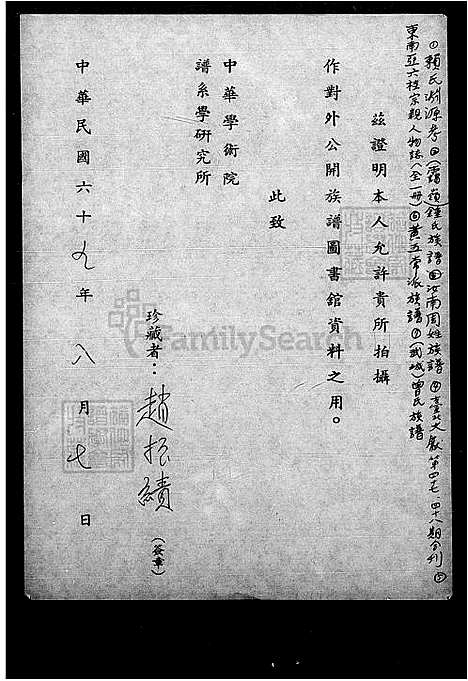 ①賴氏淵源考②(霞嶺)鍾氏族譜③汝南周姓族譜④臺北文獻第四七、四十八期合刊⑤
東南亞六桂宗親人物誌(全一冊)⑥黃五常派族譜⑦(武城)曾氏族譜
茲證明本人允許貴所拍攝
作對外公開族譜圖書館資料之用。
此致
中華學術院
譜系學研究所
珍藏者：趙振績(簽章)
中華民國六十九年八月七日
FamilySearch